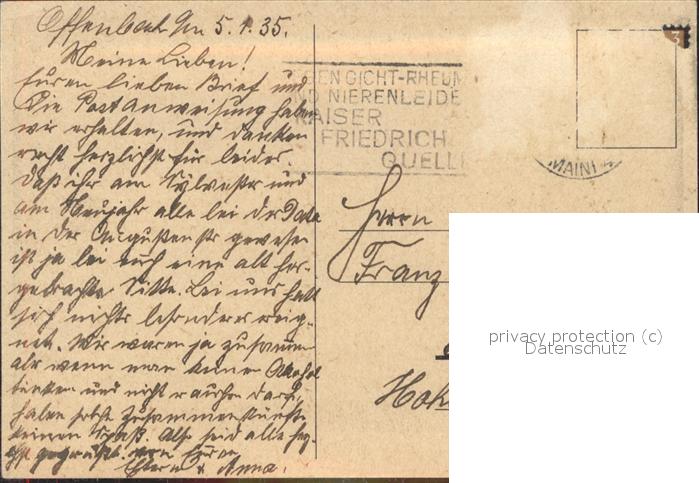 Offenbach M 5.1.35.
Meine Lieben!
Euren lieben Brief und
die Postanweisung haben
wir erhalten, und danken
recht herzlichst für beides.
Daß ihr am Sylvester und
am Neujahr alle bei der
in der Augustenstr gewesen
ist ja bei euch eine alt her-
gebrachte Sitte. Bei uns hatt
sich nichts besonderes ereig-
net. Wir waren ja zusammen
aber wenn man keinen Alkohol
trinken und nicht rauchen darf,
haben solche Zusammenkünfte
keinen Spaß. Also seid alle
gegrüßt von Euren
Eltern u Anna.
GEN GICHT-RHEUM
ND NIERENLEIDE
KAISER
FRIEDRICH
QUELLE
(MAIN)
3
Herrn
Franz
privacy protection (c)
Datenschutz